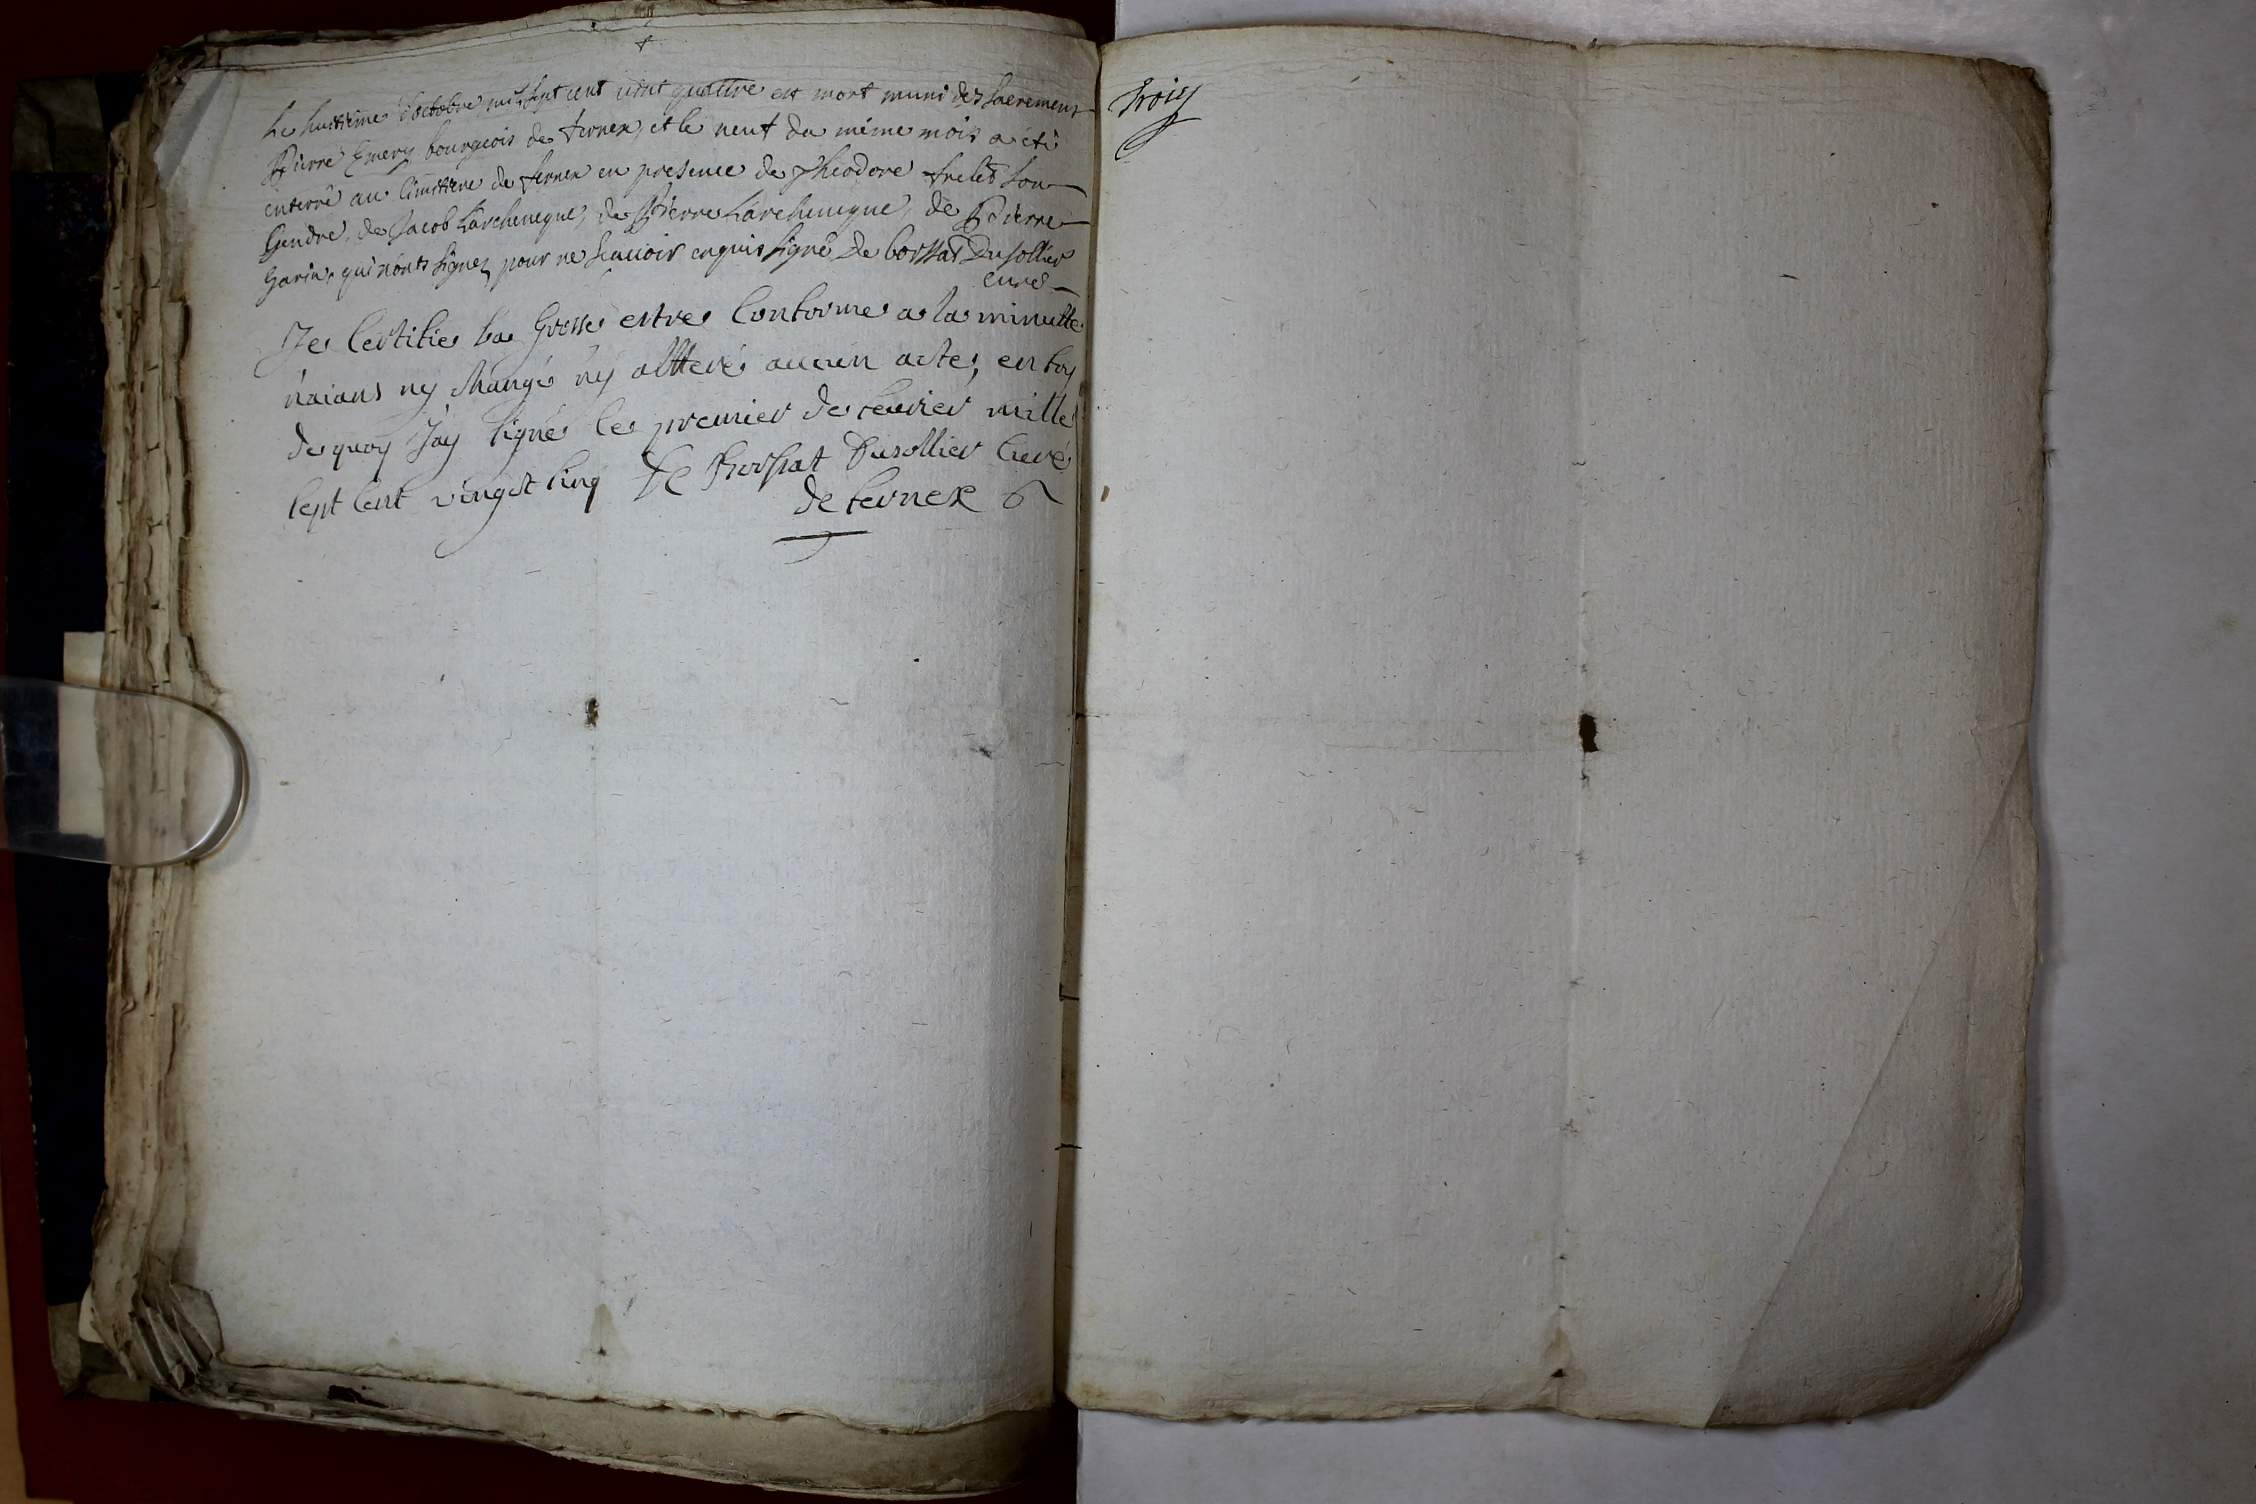 Le huitieme d'octobre mil sept cent vint quattre est mort muni des sacremens
Pierre Emery bourgeois de fernex, et le neuf du même mois a été
enterré au cimitiere de fernex en presence de Theodore son
Gendre, de Jacob Larcheueque, de Pierre Larcheueque, de Pierre
Garin, qui n'onts signez pour ne scauoir enquis signé De borssat Dusollier
curé
Je Certifie la Grosse estre Conforme a la minutte
n'aians ny change ny altteré aucun acte, en foy
de quoy j'ay signé le premier de feurier mille
sept Cent vingst cinq De Borssat Dusollier Curé
de fernex
troisy